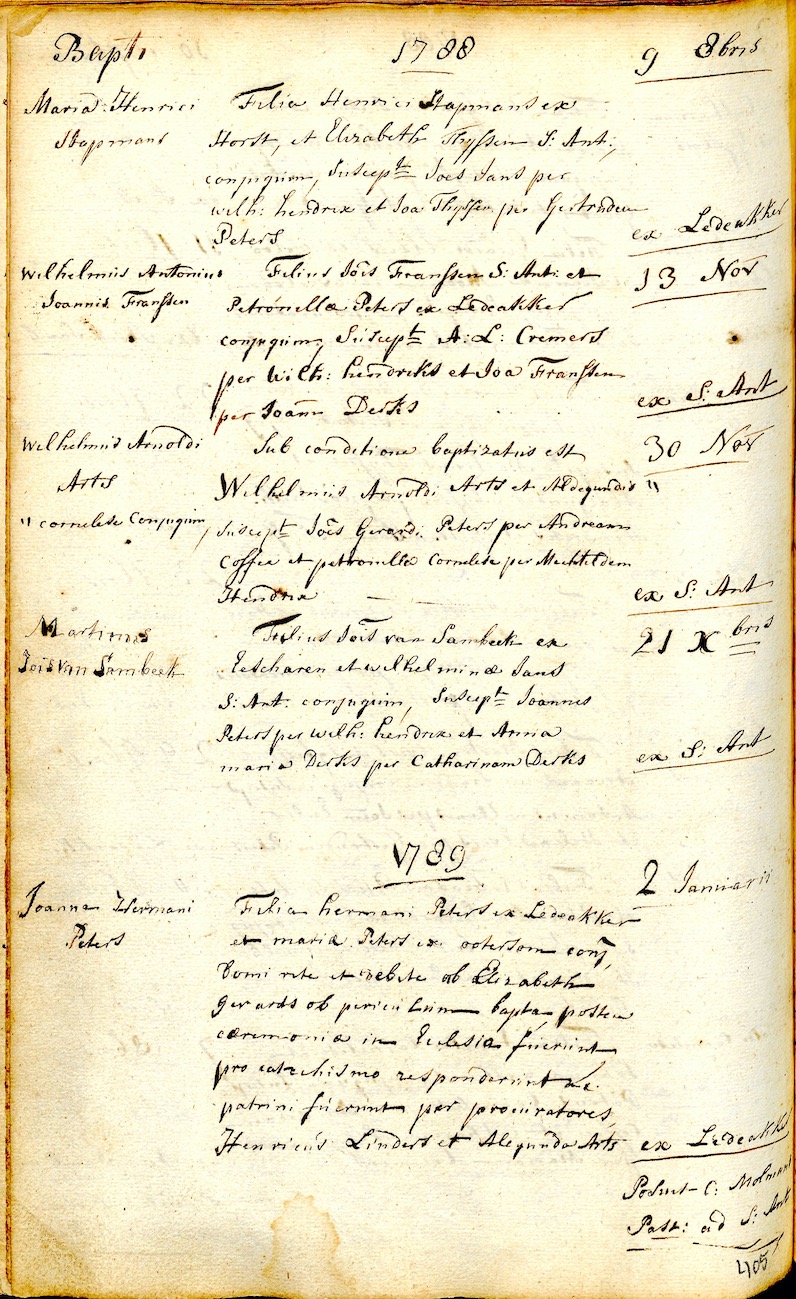 Bapt: 1788 9 8bris
Maria Henrici Filia Henrici Stapmans ex
Stapmans Horst, et Elizabeth Thyssen S: Ant:
conjugum, Suscept Joes Jans per
wilh: hendrix et Joa Thyssen per Gertruden
Peters ex Ledeakker
Wilhelmus Antonius Filius Jois Franssen S: Ant: et 13 Nov
Joannis Franssen Petronellæ Peters ex Ledeakker
conjugum, Suscept A: L: Cremers
per Wilh: hendriks et Joa Franssen
per Joann Derks ex S: Ant
Wilhelmus Arnoldi Sub conditione baptizatus est 30 Nov
Arts Wilhelmus Arnoldi Arts et Aldegundis "
" cornelise Conjugum, Suscept Jois Gerardi Peters per Andream
Coffea et petronilla Cornelise per Mechtildem
Hendrix ex S: Ant
Martinus Filius Jois van Sambeek ex 21 Xbris
Jois van Sambeek Escharen et wilhelminæ Jans
S: Ant: conjugum, Suscept Joannes
Peters per wilh: hendrix et Anna
maria Derks per Catharinam Derks ex S: Ant
1789
2 Januarii
Joanna Hermani Filia hermani Peters ex Ledeakker
Peters et maria Peters ex conj,
Domi rite et debite ob Elizabeth
Gerards ob periculum bapta, postea
cæremoniæ in Ecclesia fuerunt
pro catechismo responderunt
patrini fuerunt per procuratores,
Henricus Linders et Alegunda Arts ex Ledeakker
Posuit C: Molmans
Past: ad S: Ant
405